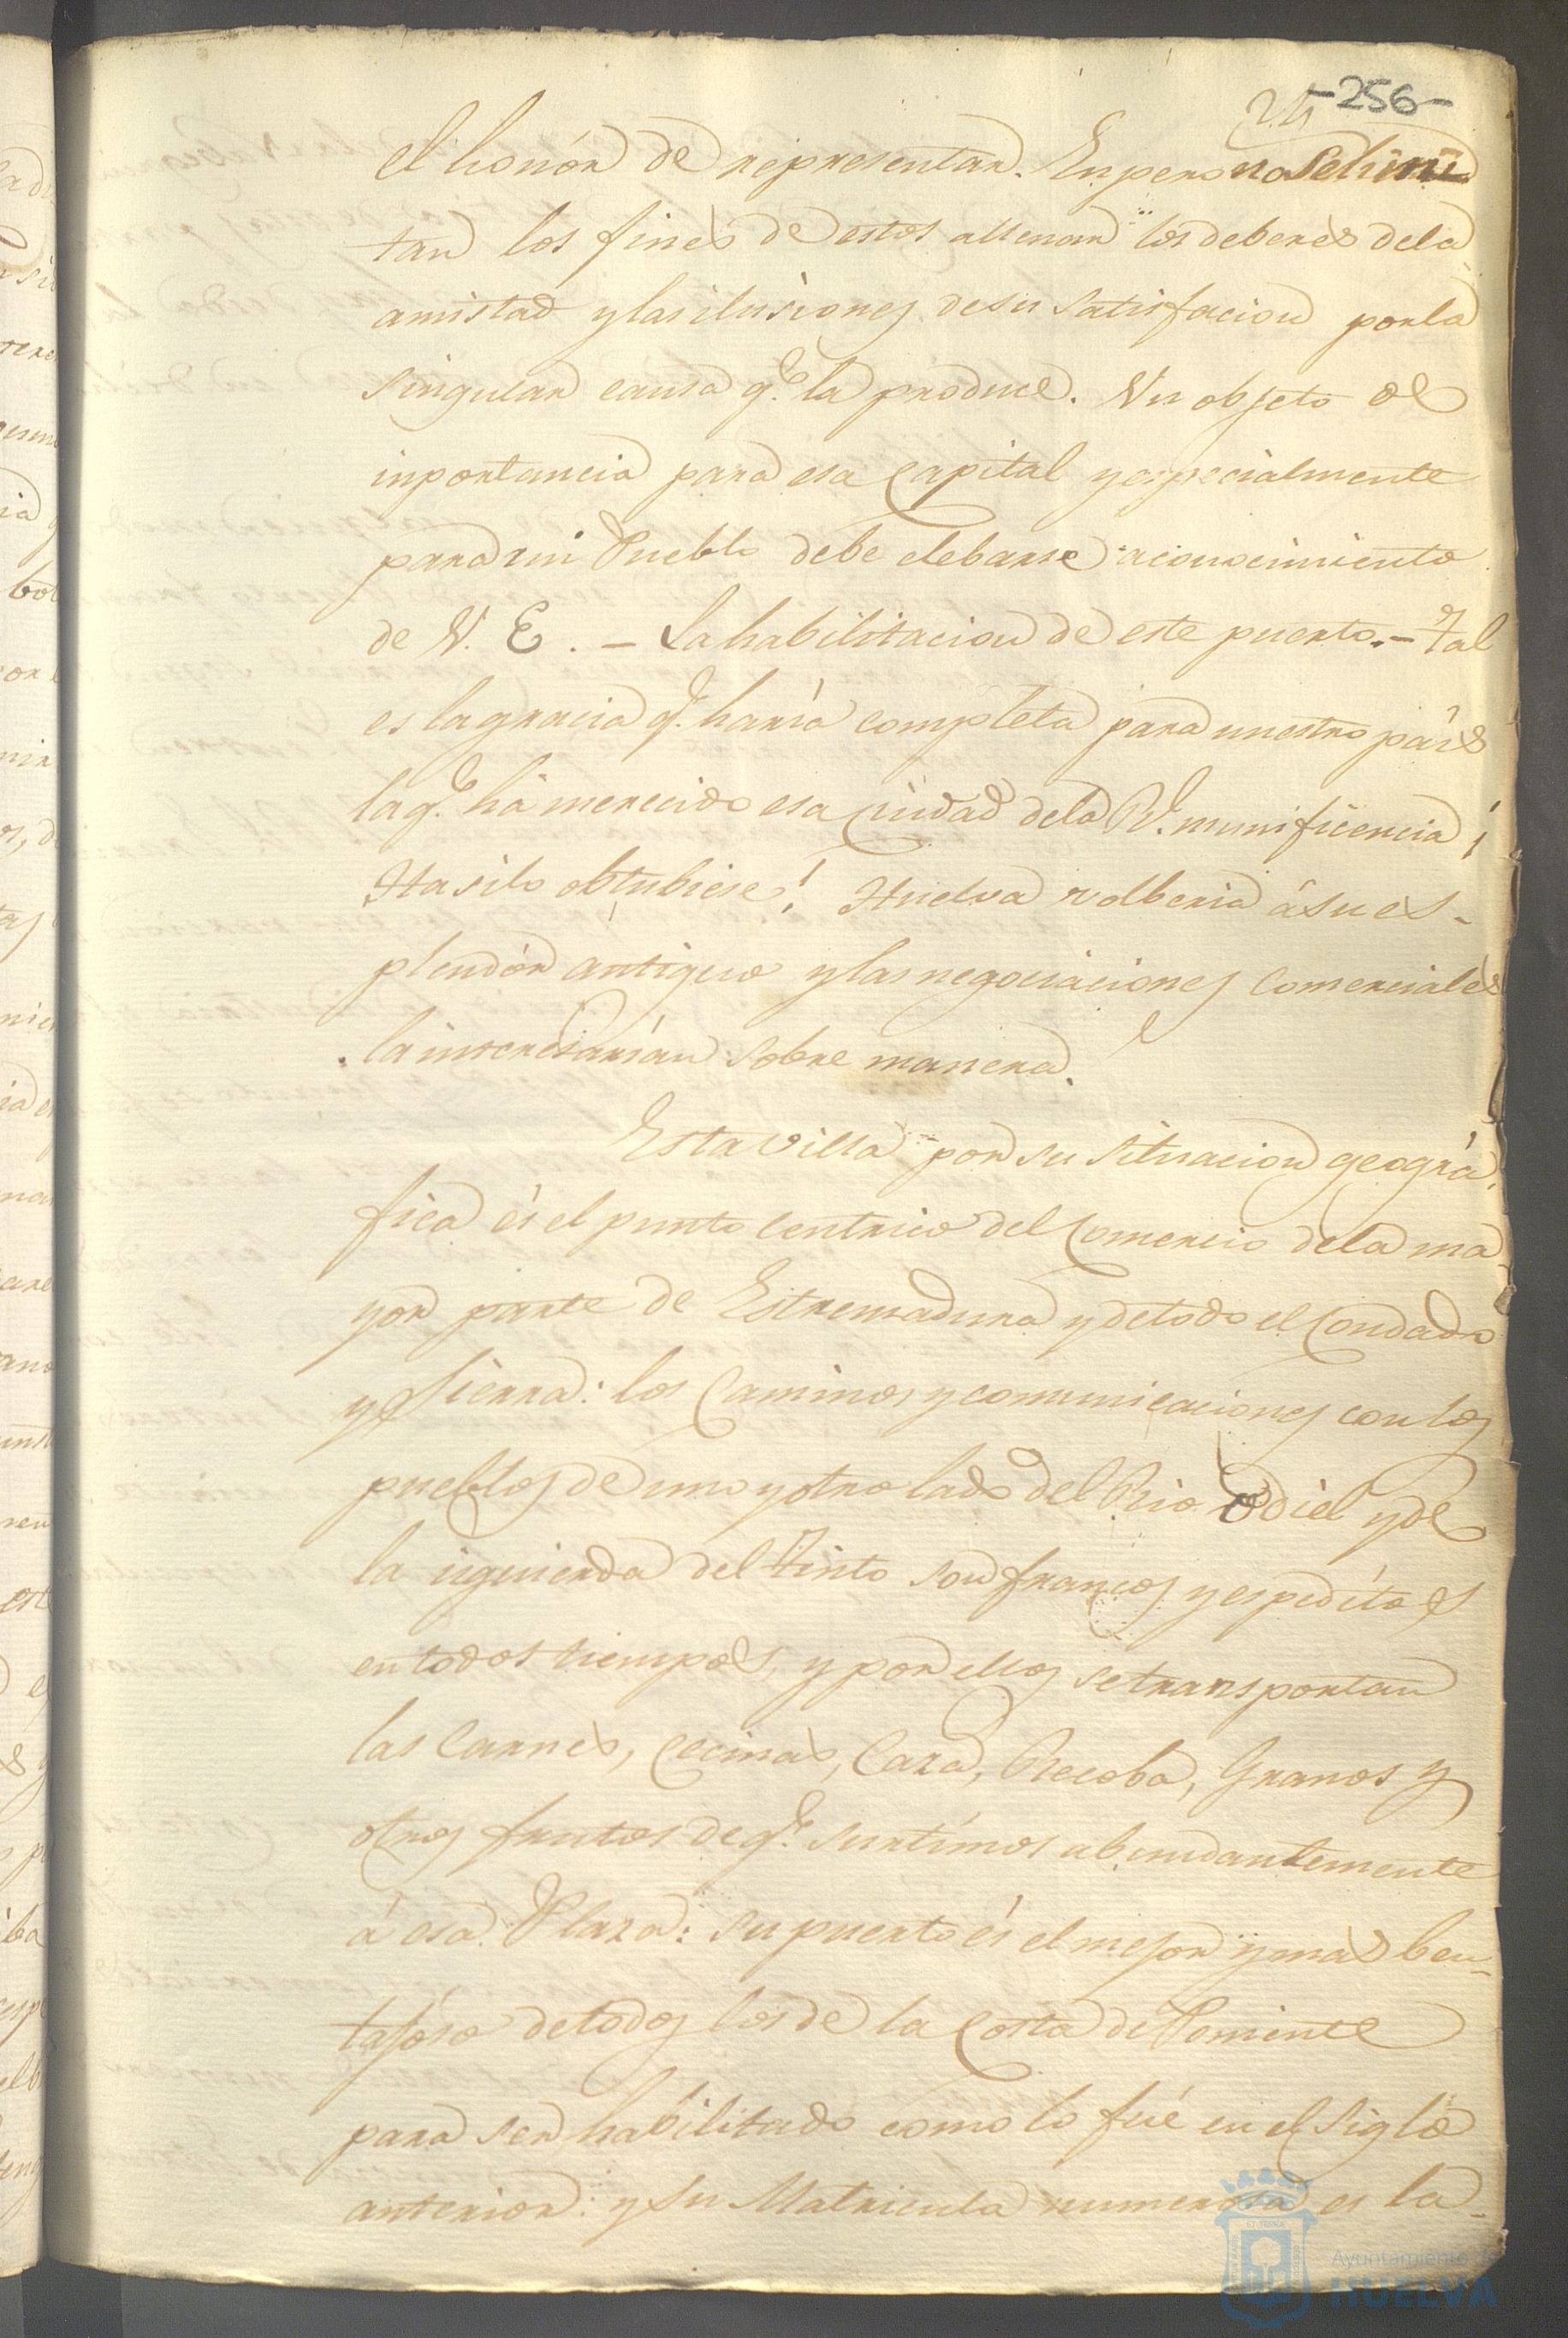 -256-
el honór de representar. Enpero no se limi
tan los fines de estos allenar los deberes dela
amistad y las ilusiones de su satisfacion por la
singular causa q.e la produce. Un objeto de
inportancia para esa Capital y especialmente
para mi Pueblo debe elebarse a conocimiento
de V. E. – La habilitacion de este puerto. – Tal
es la gracia q.e haría completa para nuestro país
la q.e há merecido esa Ciudad dela Rl. munificencia ¡
Ha si lo obtubiese! Huelva volberia á su es-
plendór antiguo y las negociaciones Comerciales
la interesarían sobre manera.
Esta villa por su situacion geográ
fica és el punto centrico del Comercio dela ma
yor parte de Estremadura y de todo el Condado
y Sierra: los Caminos y comunicaciones con los
pueblos de uno y otro lado del Rio Odiel y de
la izquierda del Tinto son francos y espeditos
en todos tiempos, y por ellos se transportan
las Carnes, Cecinas, Caza, Recoba, Granos y
otros frutos de q.e surtimos abundantemente
á esa Plaza: su puerto és el mejor y mas ben-
tajóso de todos los de la Costa de Poniente
para ser habilitado como lo fué en el Siglo
anterior: y su Matricula numerosa es la
Ayuntamiento de
HUELVA